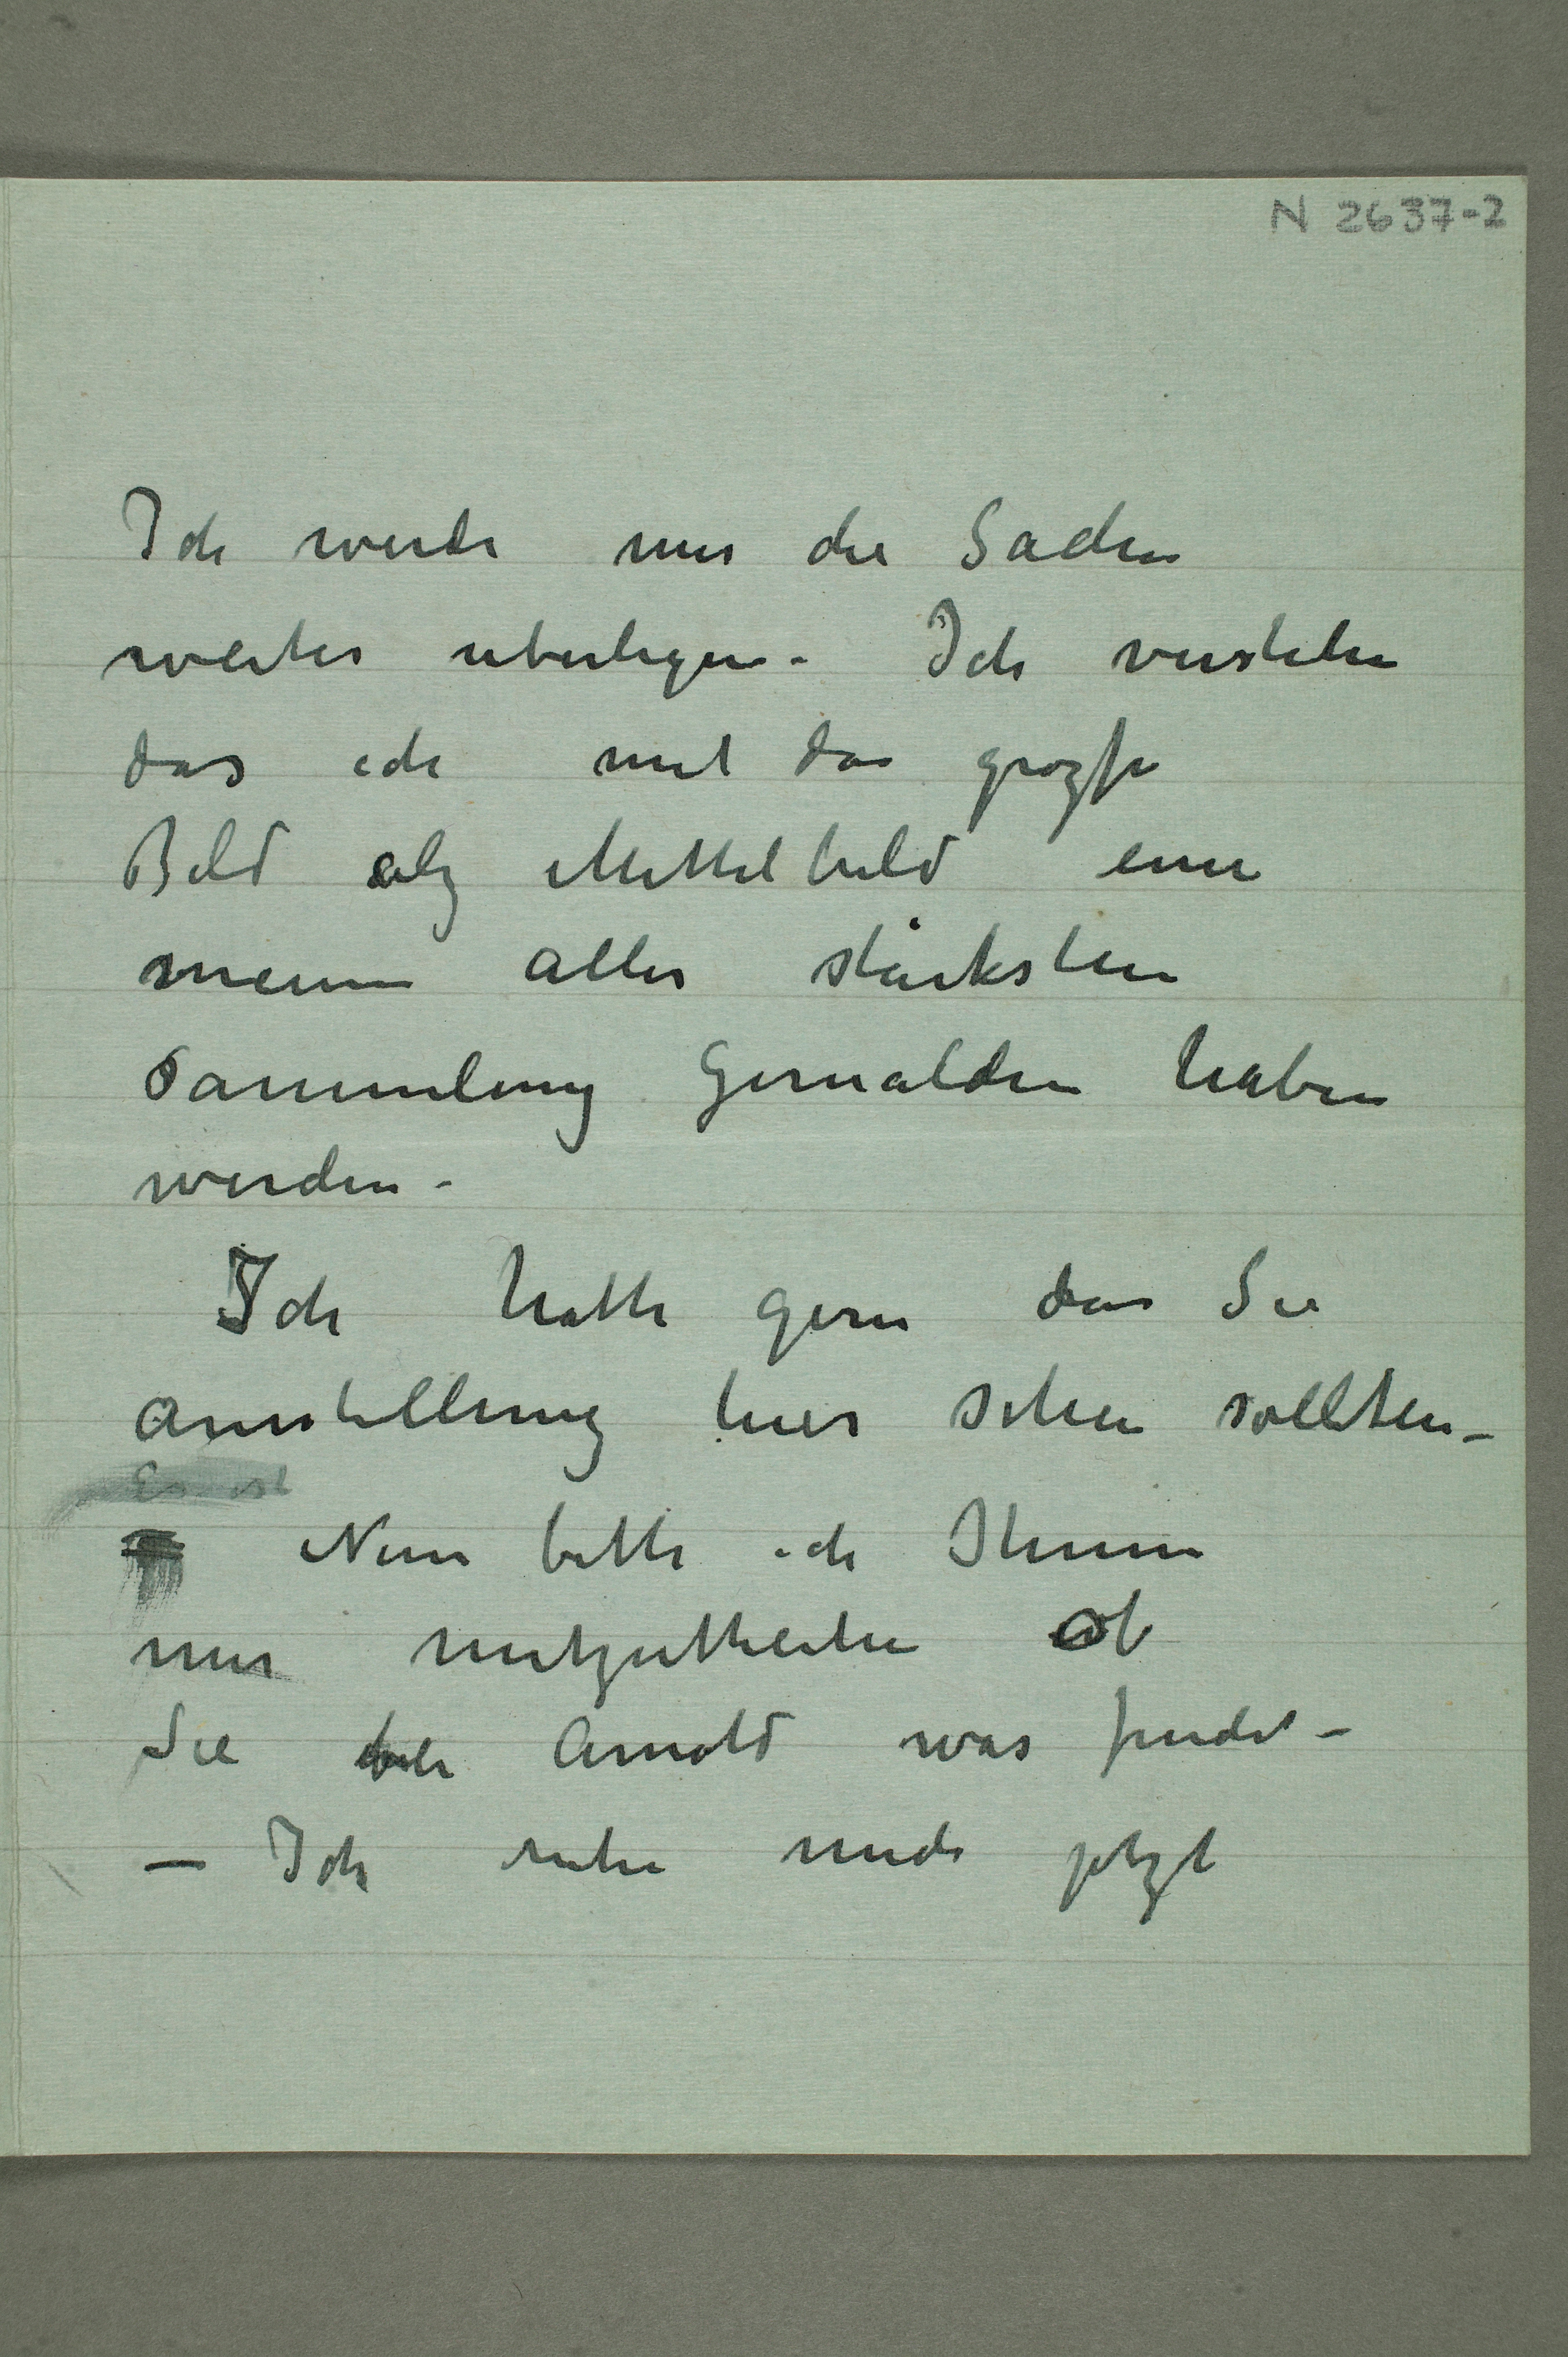 N 2637-2
Ich werde mir die Sachen
weiter uberlegen – Ich verstehe
das ich mit das grozse
Bild alz Mittelbild eine
meine aller stärksten
Sammlung Gemälden haben
werden –
Ich hatte gern das Sie
Ausstellung hier sehen sollten –
Es ist
Nun bitte ich Ihnen
mir mitzutheilen ob
Sie bei Arnold was findet –
— Ich ruhe mich jetzt